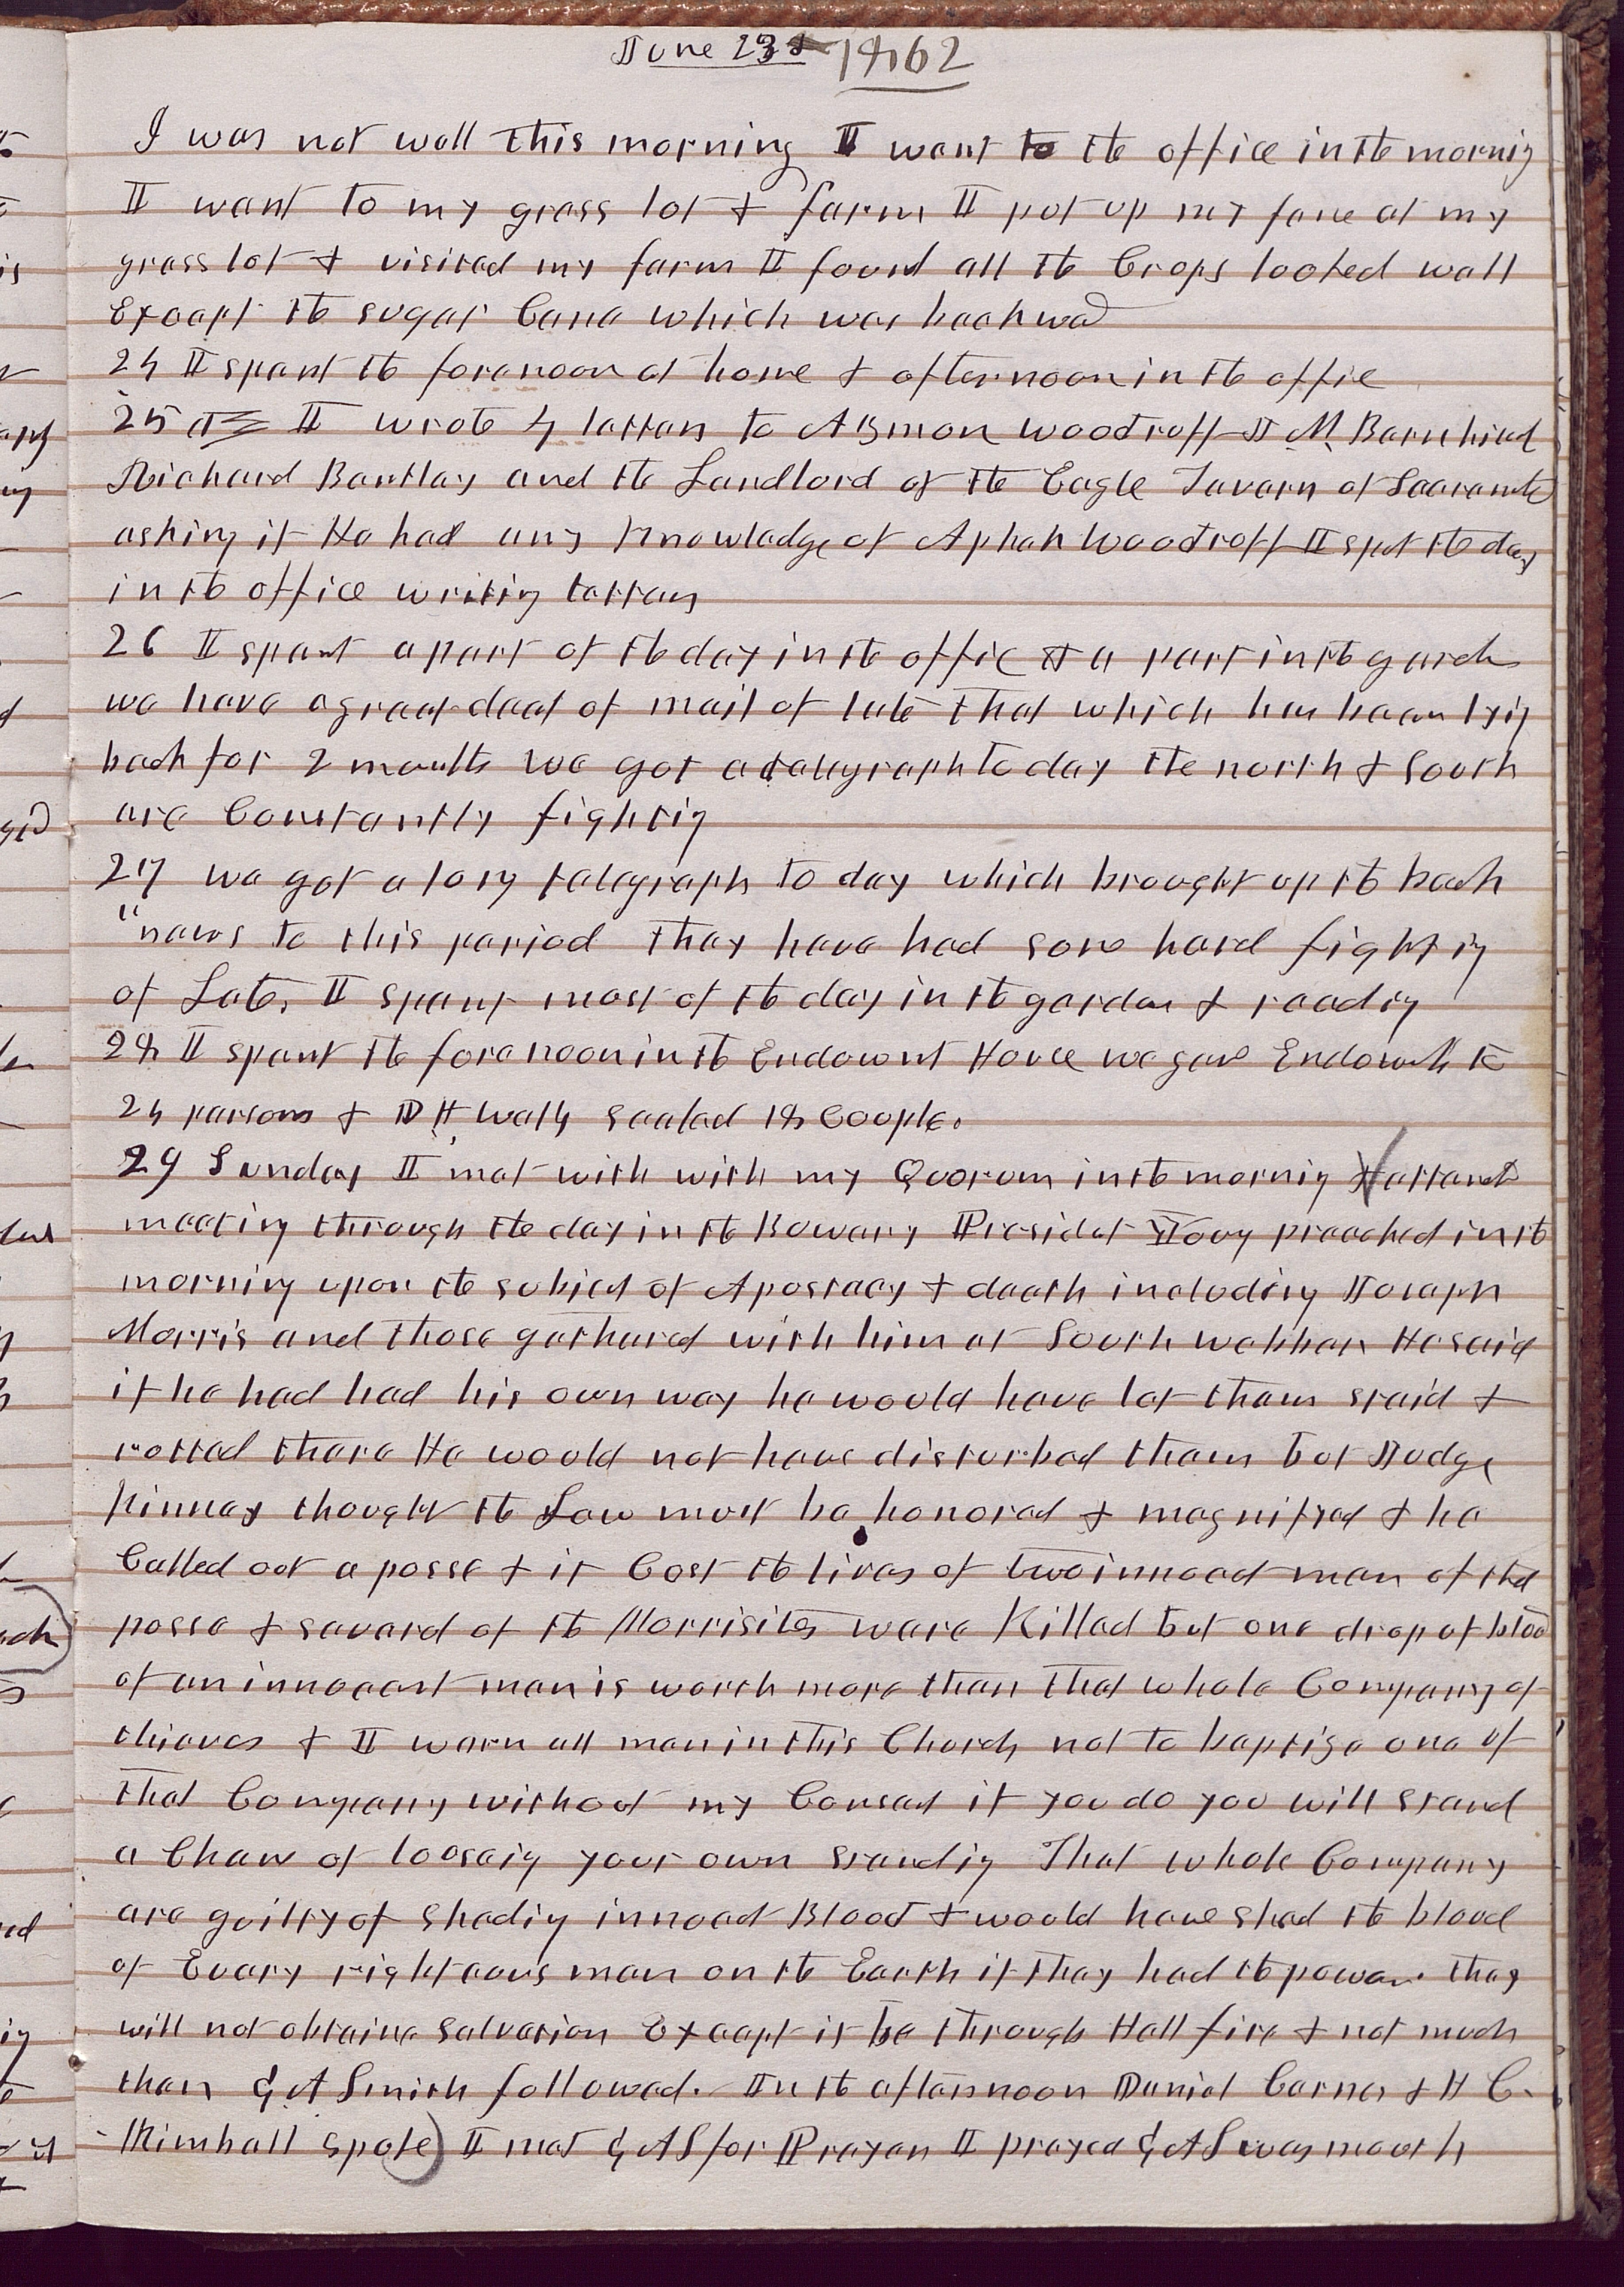 June 23d 1862
I was not well this morning I went to the office in the mornig
I went to my grass lot & farm I put up my fence at my
grass lot & visited my farm I found all the Crops looked well
Except the sugar Cane which was backwad
24 I spent the forenoon at home & afternoon in the offic
25 I wrote 4 letters to Azmon Woodruff J M Barnhisel
Richard Bentley and the Landlord of the Eagle Tavern of Sacramento
asking if He had any knowledge of Aphek Woodruff I spet the day
in the office writig letters
26 I spent a part of the day in the offic & a part in the garden
we have a great deal of mail of late that which has been lyig
back for 2 months we got a telegraph to day the north & South
are Constantly fightig
27 we got a long telegraph to day which brought up the back
news to this period they have had some hard fightig
of Late, I spent most of the day in the garden & readig
28 I spent the forenoon in the Endowmt House we gave Endowmts to
24 persons & D H Wells sealed 18 Couple.
29 Sunday I met with with my Quorum in the mornig & attended
meeting through the day in the Bowery President Young preached in the
morning upon the subject of Apostacy & death including Joseph
Morris and those gathered with him at South webber He said
if he had had his own way he would have let them staid &
rotted there He would not have disturbed them but Judge
Kinney thought the Law must be honored & magnifyed & he
Called out a posse & it Cost the lives of two innocet men of the
posse & several of the Morrisites were Killed but one drop of blood
of an innocent man is worth more than that whole Company of
thieves & I warn all men in this Church not to baptize one of
that Company without my Consent if you do you will stand
a Chance of looseig your own standig That whole Company
are guilty of shedig innocet Blood & would have shed the blood
of Every righteous man on the Earth if they had the power. they
will not obtaine salvation Except it be through Hell fire & not much
then G A Smith followed. In the afternoon Daniel Carnes & H C.
Kimball spoke I met G A S for Prayer I prayed G A S was mouth